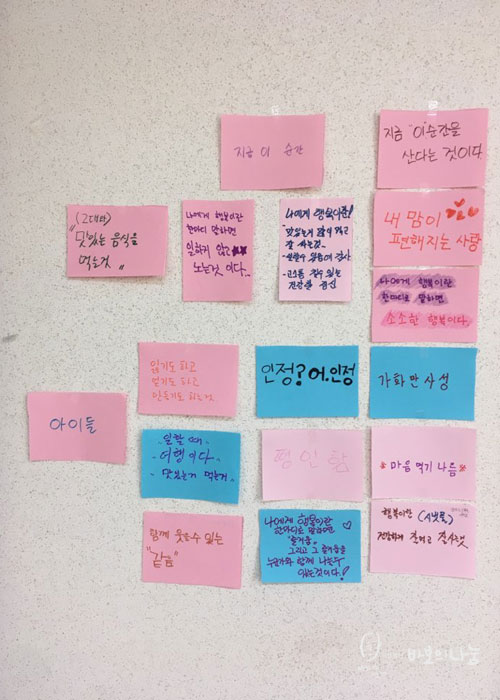 지금 이 순간
지금 "이"순간을
산다는 것이다.
(그때마다)
"맛있는 음식을
먹는것"
나에게 행복이란
한마디 말하면
일하지 않고
노는것 이다..
나에게 행복이란!
잘 사는것..
내 맘이
편해지는 사람
나에게 행복이란
한마디로 말하면
소소한 행복이다
읽기도 하고
걷기도 하고
만들기도 하는것.
인정? 어.인정
가화만사성
아이들
일할 때
여행이다
맛있는거 먹는거
평안함
마음 먹기 나름
함께 웃을수 있는
"같음"
나에게 행복이란
한마디로 말하면
"즐거움"
그리고 그 즐거움을
누군가와 함께 나눌수
있는것이다!
행복이란
건강하게 잘먹고 잘사는것
바보의나눔